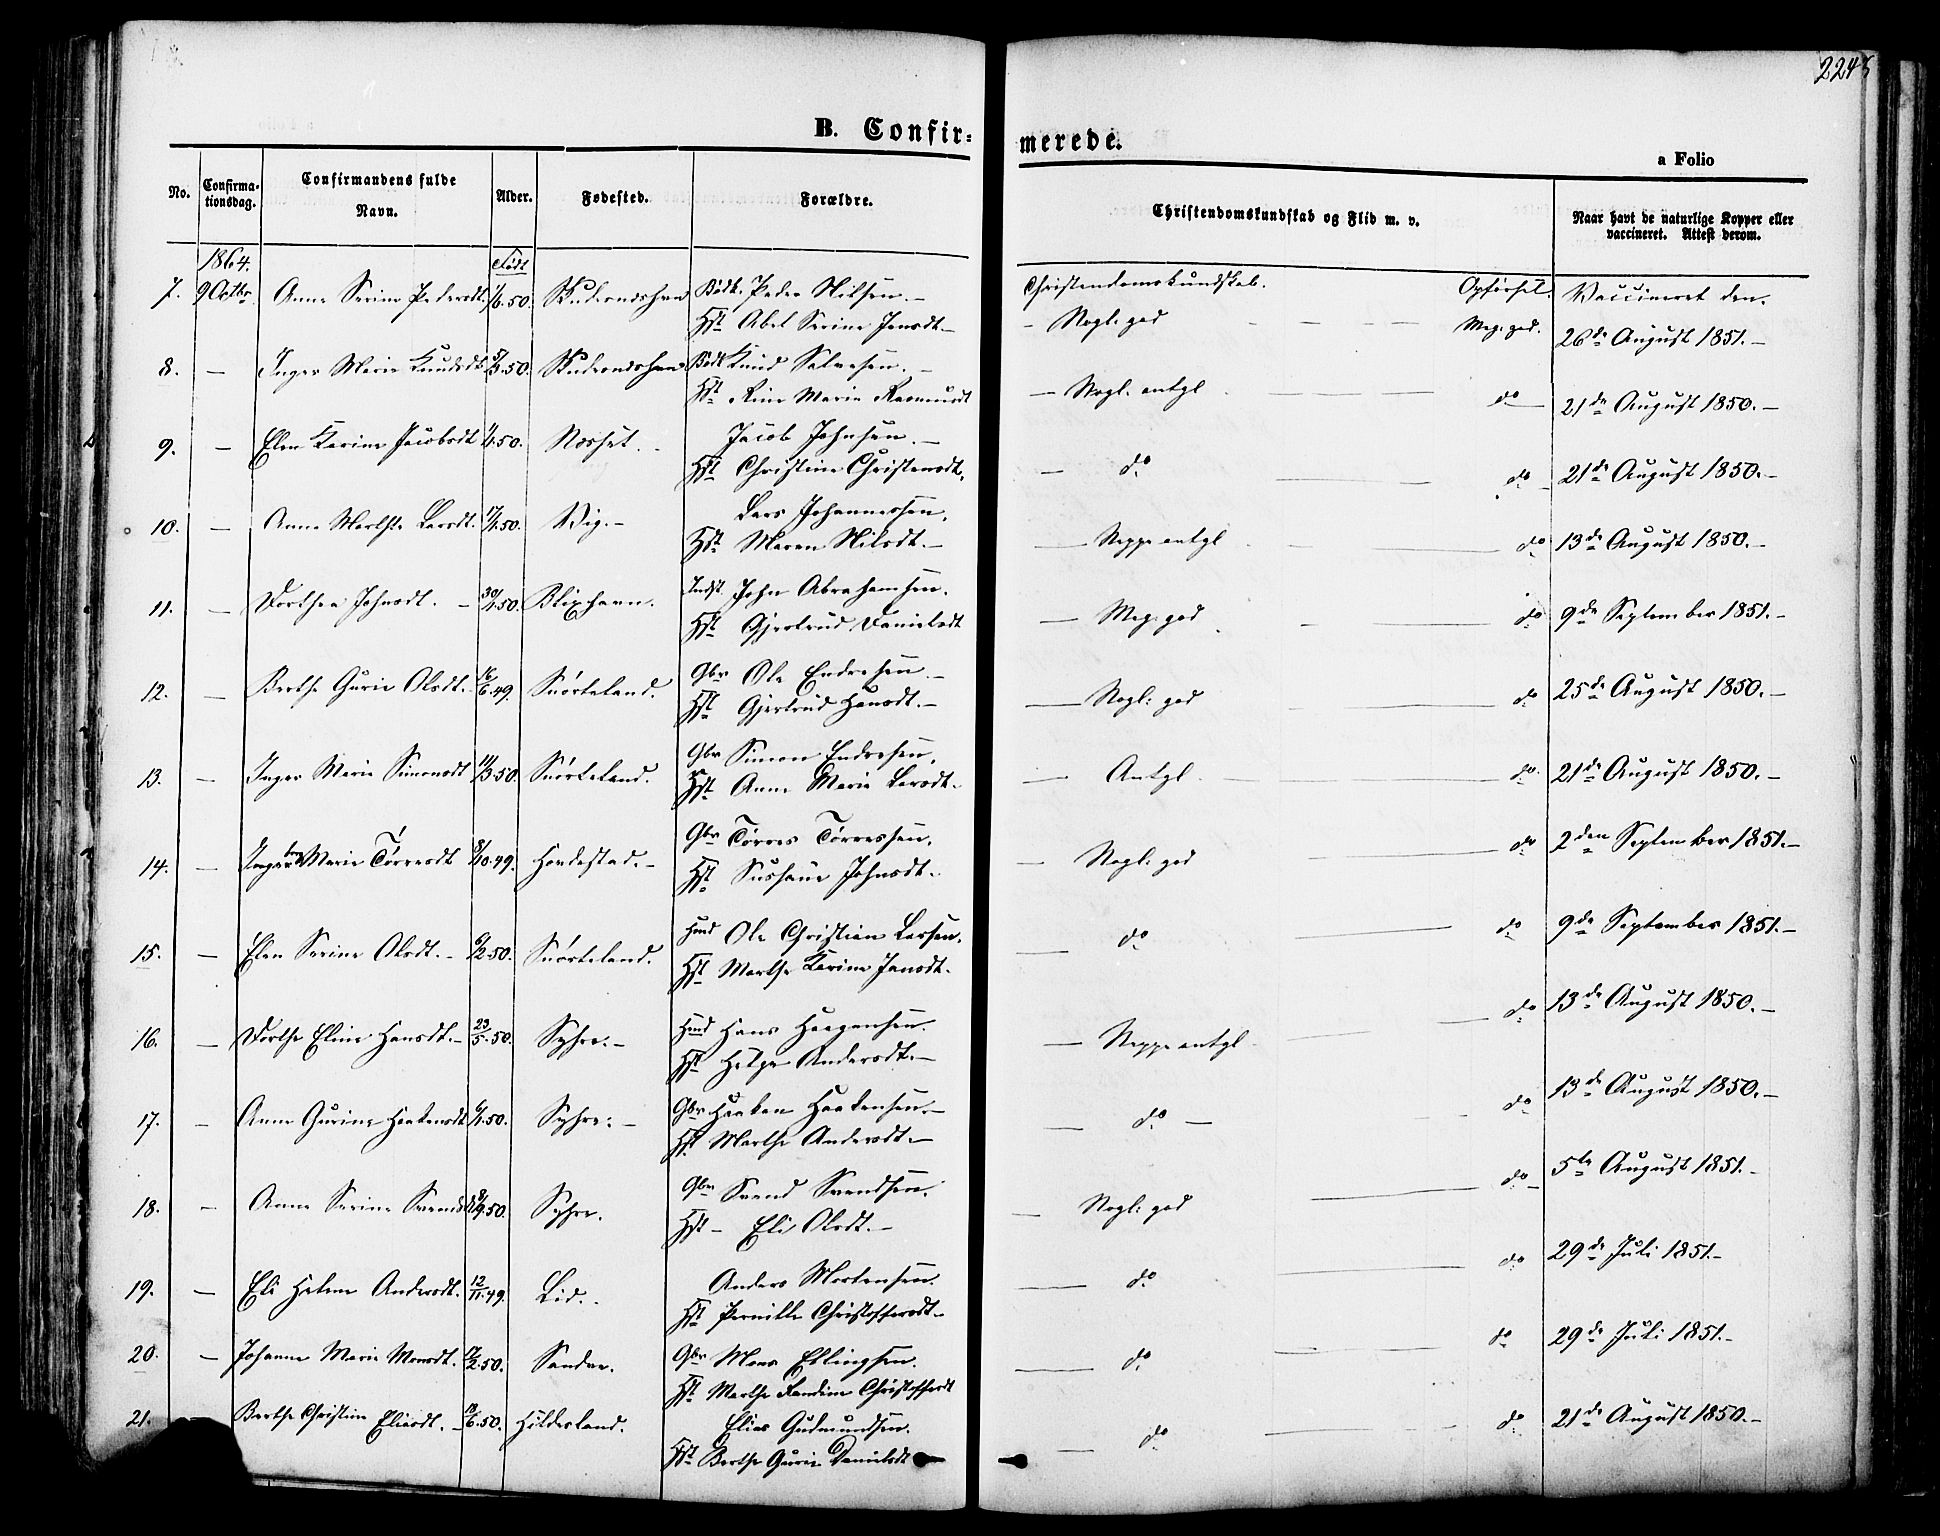 2243
B. Confir-
merede.
a Folio
No.
Confirma-
tionsdag.
Confirmandens fulde
Navn.
Alder.
Fødested.
Forældre.
Christendomskundskab og Flid m. v.
Naar havt de naturlige Kopper eller
vaccineret. Attest derom.
1864. Født
7. 9 Octbr. Anne Serine Pedersdt. 1/6.50. Skudesneshavn Bødk. Peder Nilsen. — Christendomskundskab. Opførsel. Vaccineret den.
Hst Abel Serine Jensdt. — — Nogl: god — — — — Meg: god. 26de August 1851. —
8. — Inger Marie Knudsdt 5/3.50. Skudesneshavn Bødk Knud Salvesen. —
Hst Rine Marie Rasmusdt — Nogl. antgl do 21de August 1850. —
9. — Elen Karine Jacobsdt 50. Nesset. Jacob Johnsen. —
Hst Christine Christensdt. — do do 21de August 1850. —
10. — Anne Marthe Larsdt. 17/4.50. Vig. — Lars Johannessen.
Hst Maren Nilsdt. — — Neppe antgl do 13de August 1850. —
11. — Dorthea Johnsdt. — 30/4.50. Blixhavn. Indst. John Abrahamsen.
Hst Gjertrud Danielsdt — Meg: god do 9de September 1851. —
12. — Berthe Gurie Olsdt. 16/6.49. Snørteland. Gbr Ole Endresen. —
Hst Gjertrud Hansdt. — — Nogl: god do 25de August 1850. —
13. — Inger Marie Simonsdt 11/3.50. Snørteland. Gbr Simon Endresen.
Hst Anne Marie Larsdt. — Antgl. do. 21de August 1850. —
14. — Ingeborg Marie Tørresdt 8/10.49. Hondestad. — Gbr Tørres Tørressen.
Hst Sussane Johnsdt. — Nogl: god do 2den September 1851. —
15. — Elen Serine Olsdt. — 6/2.50. Snørteland. Hmd Ole Christian Larsen.
Hst Marthe Karine Jansdt. — do do 9de September 1851. —
16. — Dorthe Eline Hansdt. — 23/5.50. Syhre. — Hmd Hans Haagensen.
Hst Helge Andersdt. — — Neppe antgl do 13de August 1850. —
17. — Anne Gurine Haakensdt 6/4.50. Syhre. — Gbr Haaken Haakensen. —
Hst Marthe Andersdt. — — do — do 13de August 1850. —
18. — Anne Serine Svendsdt 50. Syhre. Gbr Svend Svendsen.
Hst — Eli Olsdt. — — Nogl: god do — 5te August 1851. —
19. — Eli Helene Andersdt. 12/11.49. Lid. Anders Mortensen.
Hst Pernille Christoffersdt. — — do do 29de Juli 1851. —
20. — Johanne Marie Monsdt. 17/2.50. Sandve. Gbr Mons Ellingsen.
Hst Marthe Randine Christoffersdt — do do 29de Juli 1851. —
21. Berthe Christine Eliasdt. — 18/6.50. Hildesland. Elias Gudmundsen.
Hst Berthe Gurie Danielsdt — do do 21de August 1850. —